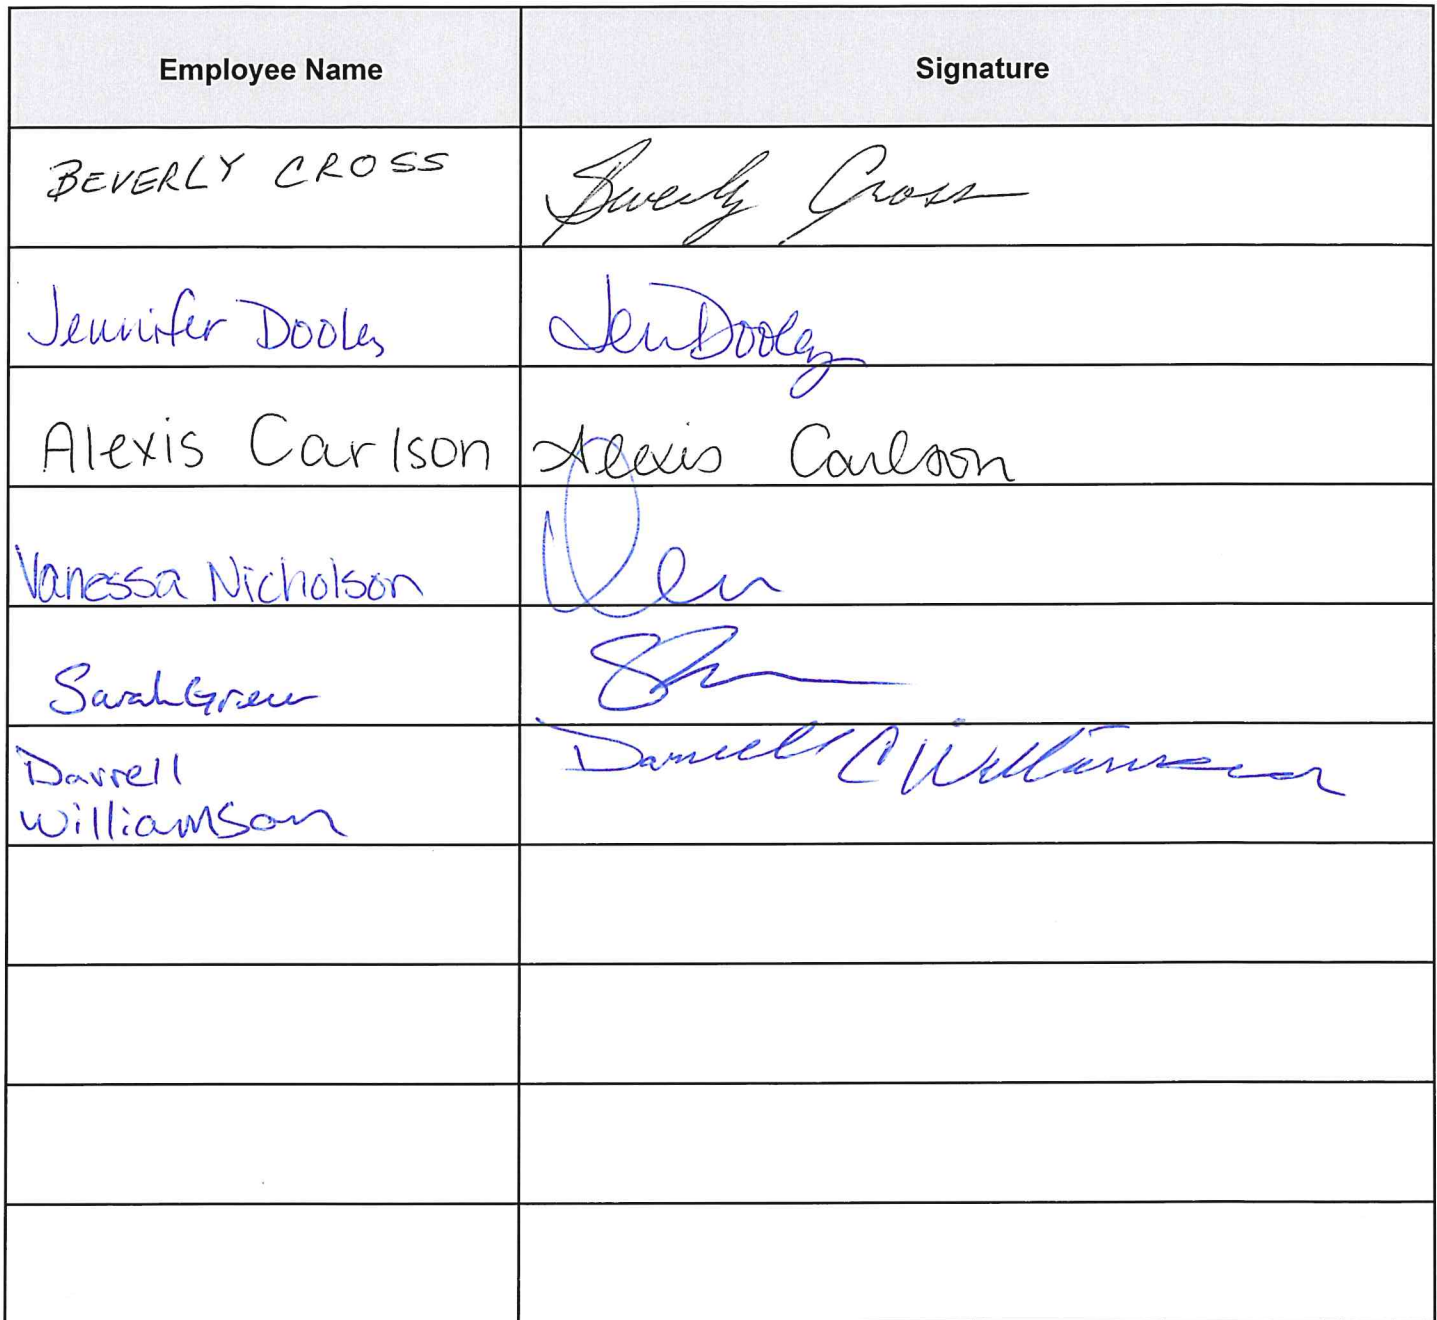 Employee Name Signature
BEVERLY CROSS Beverly Cross
Jennifer Dooley Jen Dooley
Alexis Carlson Alexis Carlson
Vanessa Nicholson
Sarah
Darrell Darrell C Williamson
Williamson